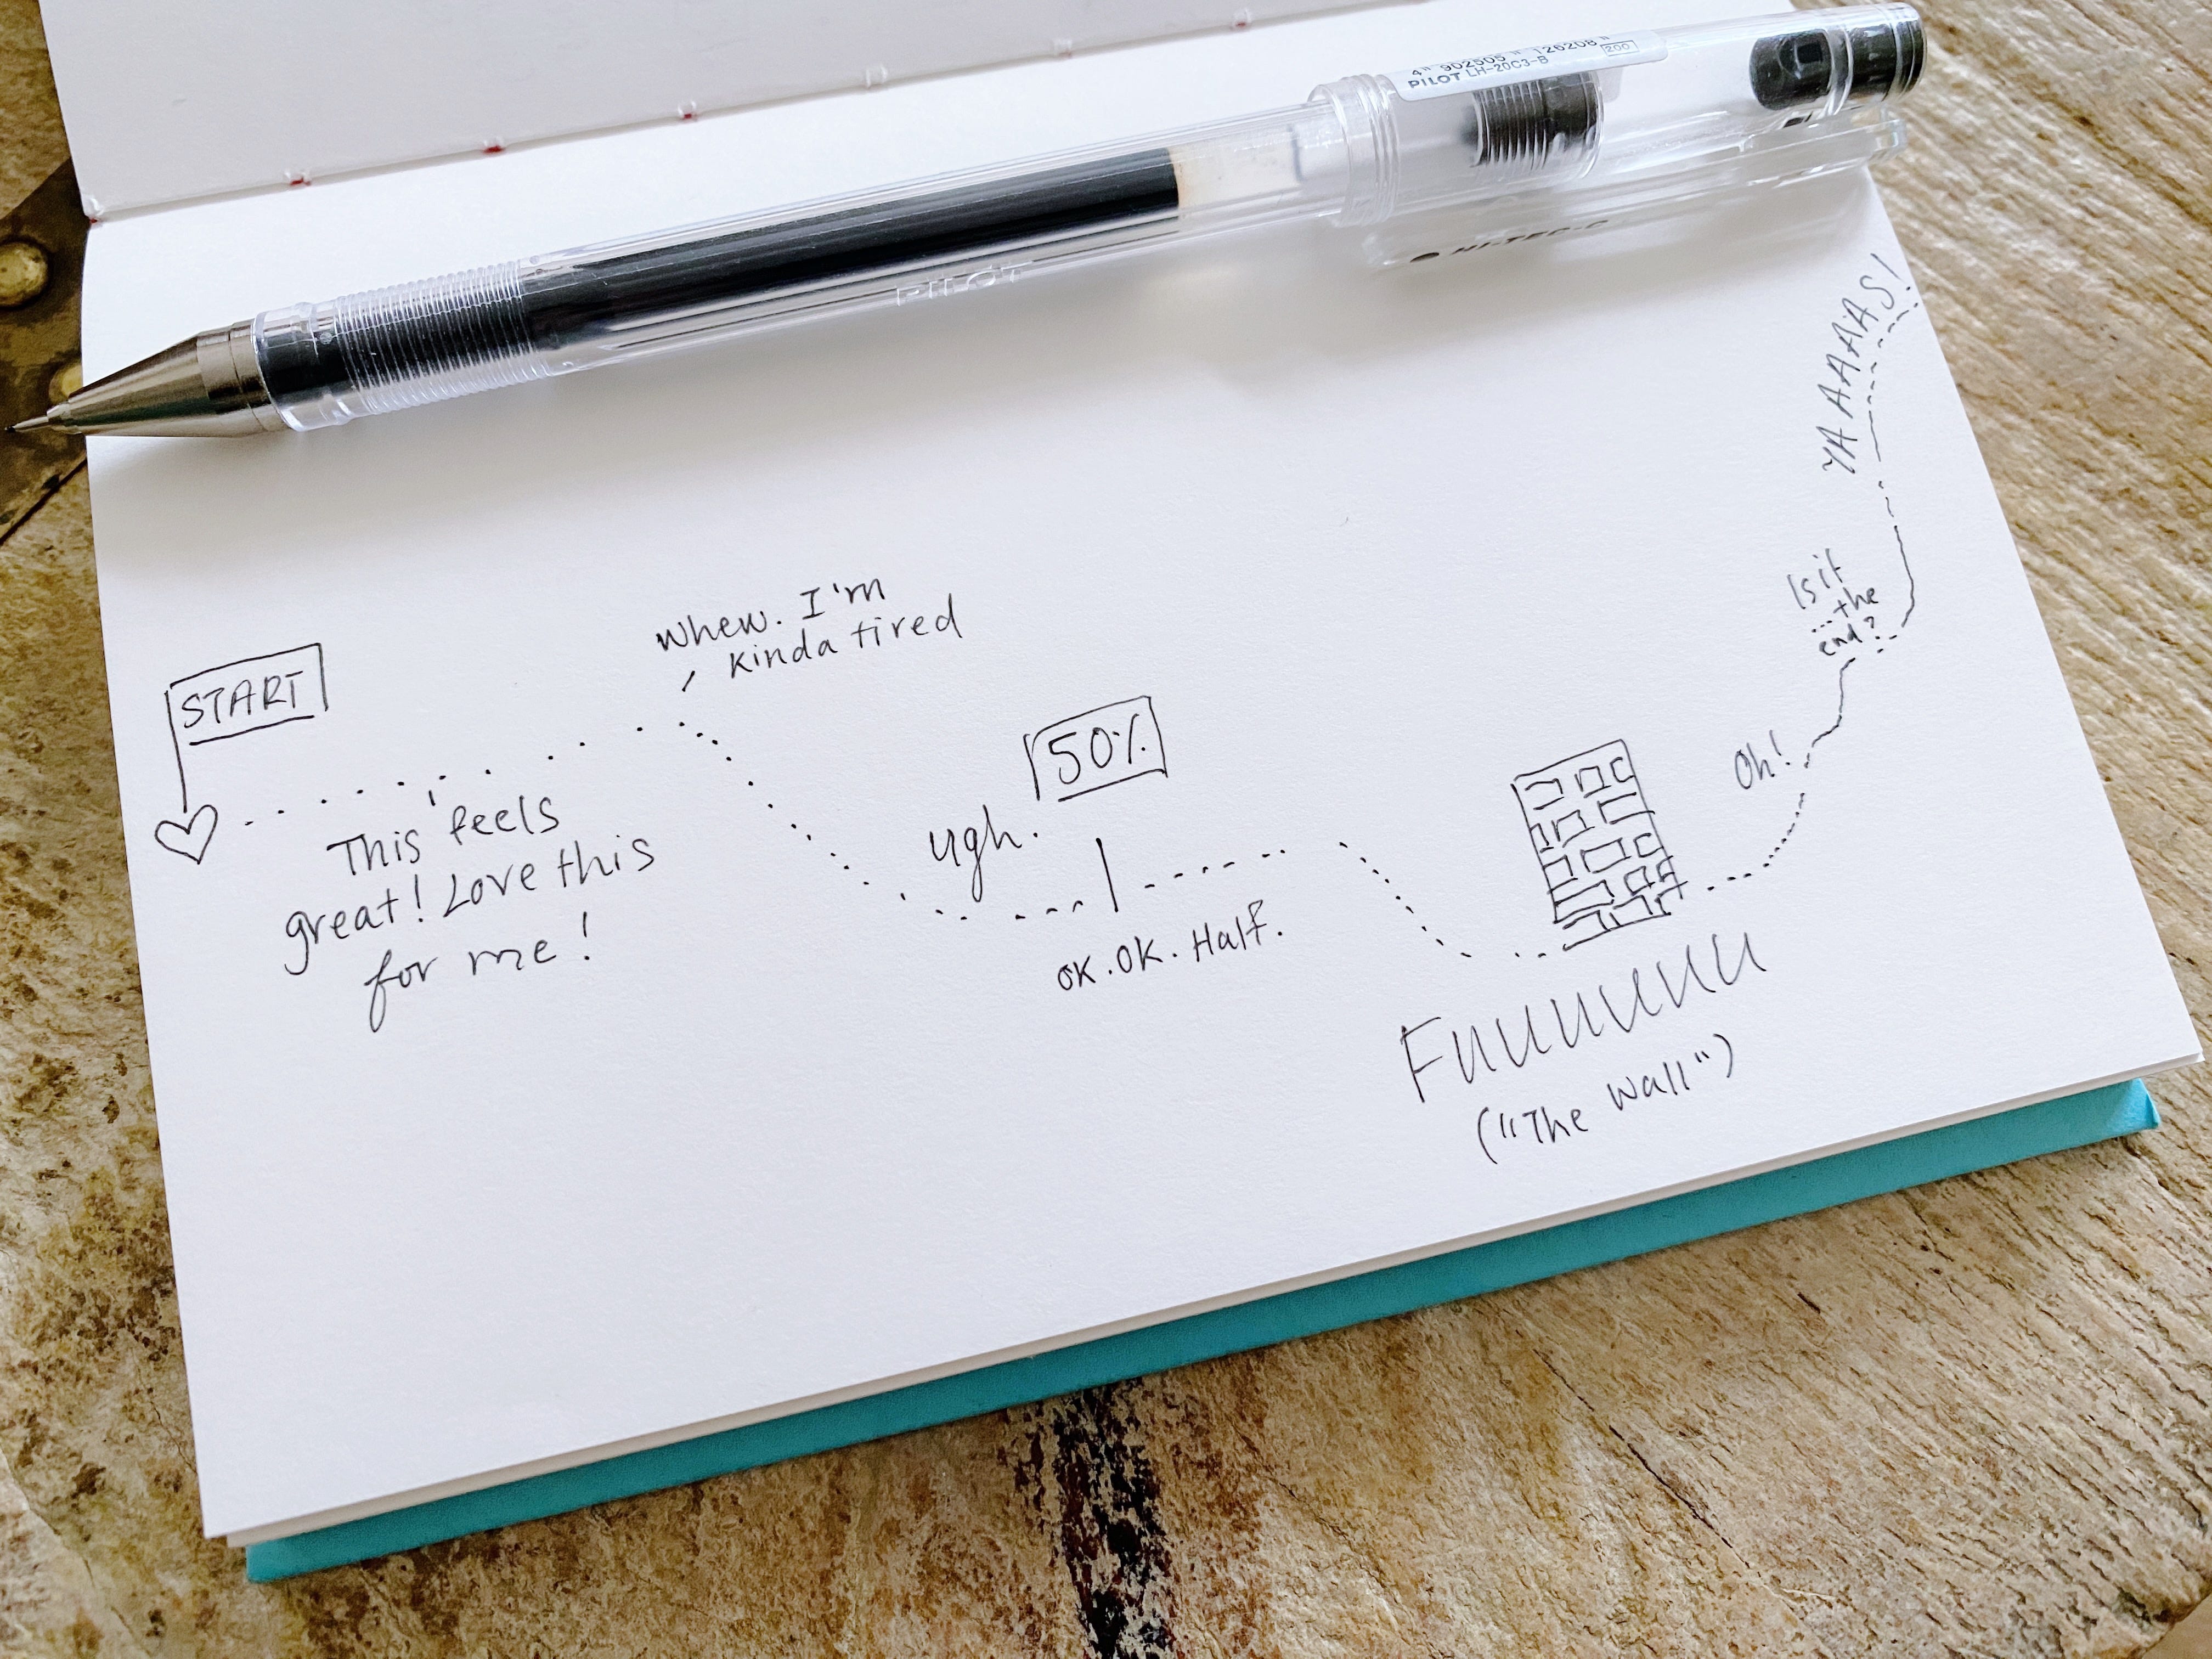 4" 902505 " 126208 "
200
PILOT LH-20C3-B
PILOT
HI-TEC-C
YAAAAAS!
Is it
...the
end?
Whew. I'm
kinda tired
START
50%
Oh!
ugh.
This feels
great! Love this
for me!
OK. OK. Half.
Fuuuuuuu
("The Wall")